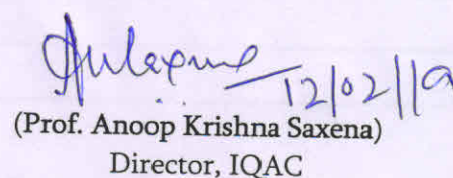 12/02/19
(Prof. Anoop Krishna Saxena)
Director, IQAC